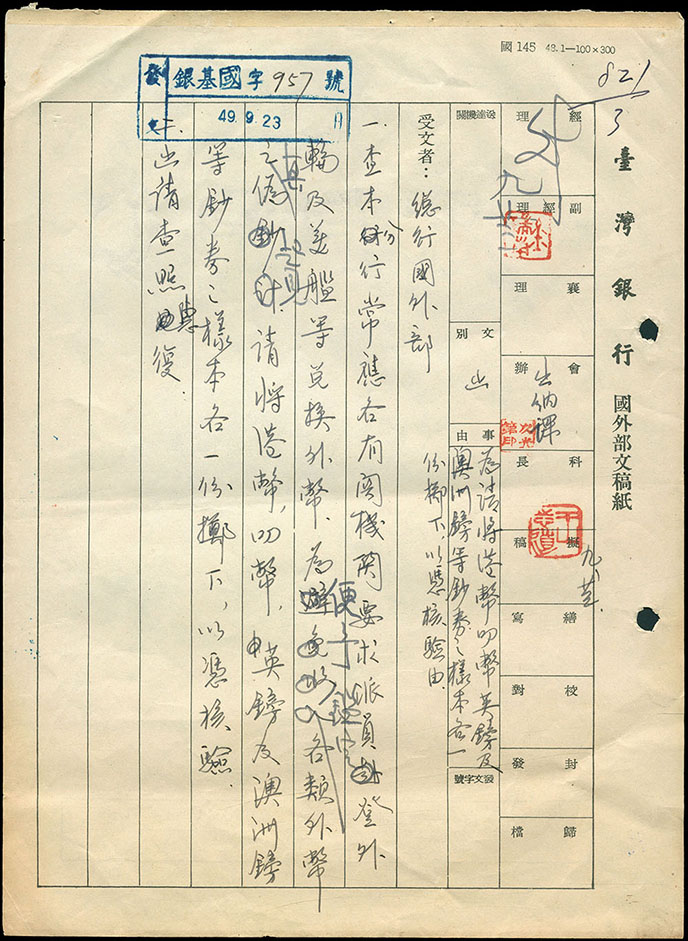 國145 48.1—100×300
821
3
臺灣銀行 國外部文稿紙
經理
副經理
襄理
會辦
出納課
科長
擬稿
繕寫
校對
封發
歸檔
送達機關
文別
函
事由
為請將港幣叻幣英鎊及
澳洲鎊等鈔券之樣本各一
份擲下，以憑核驗由.
發文字號
受文者：總行國外部
一. 查本分行常應各有關機關要求派員登外
輪及美艦等兌換外幣、為便予鑑定各類外幣
之真贋起見請將港幣，叻幣，英鎊及澳洲鎊
等鈔券之樣本各一份擲下，以憑核驗.
二. 函請查照惠復.
發文
銀基國字957號
49.9.23